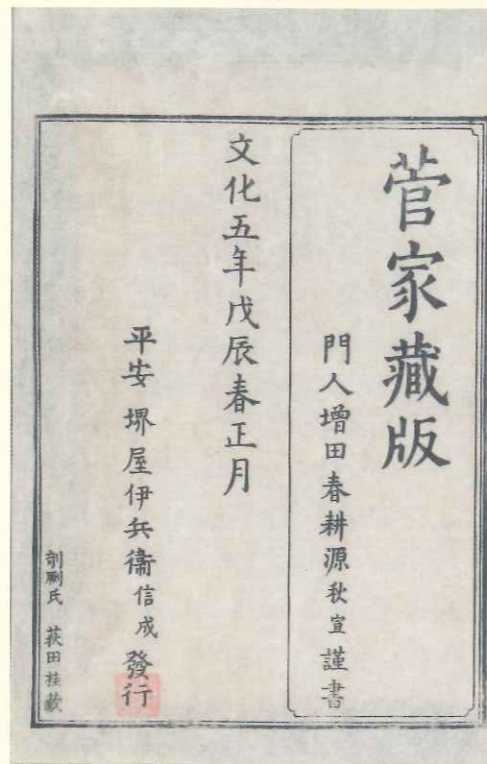 菅家藏版
門人增田春耕源秋宣謹書
文化五年戊辰春正月
平安 堺屋伊兵衞信成 發行
剞劂氏 荻田桂藏